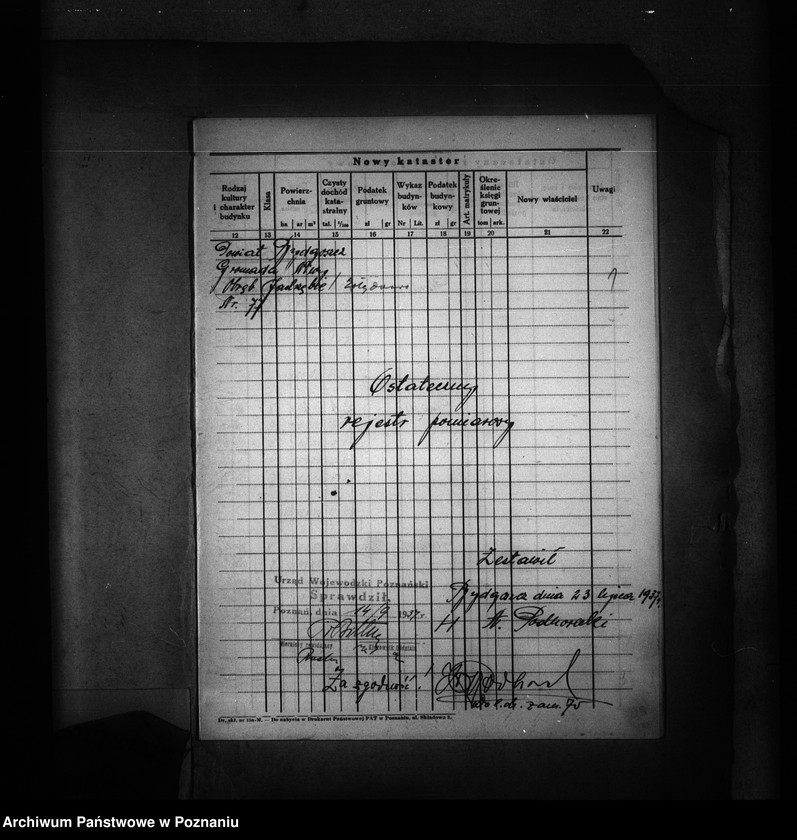 Nowy kataster
Rodzaj kultury i charakter budynku
Klasa
Powierzchnia
ha ar m²
Czysty dochód katastralny
tal. 1/100
Podatek gruntowy
zł gr
Wykaz budynków
Nr Lit.
Podatek budynkowy
zł gr
Art. matrykuły
Określenie księgi gruntowej
tom ark.
Nowy właściciel
Uwagi
12 13 14 15 16 17 18 19 20 21 22
Powiat Bydgoszcz
Gromada
Obręb Jastrzębie
Nr. 77
Ostateczny
rejestr pomiarowy
Zestawił
Bydgoszcz dnia 23 lipca 1937.
Urząd Wojewódzki Poznański
Sprawdził.
Poznań, dnia 14/9 1937 r.
Za zgodność!
Do nabycia w Drukarni Państwowej PAT w Poznaniu, ul. Składowa
Archiwum Państwowe w Poznaniu